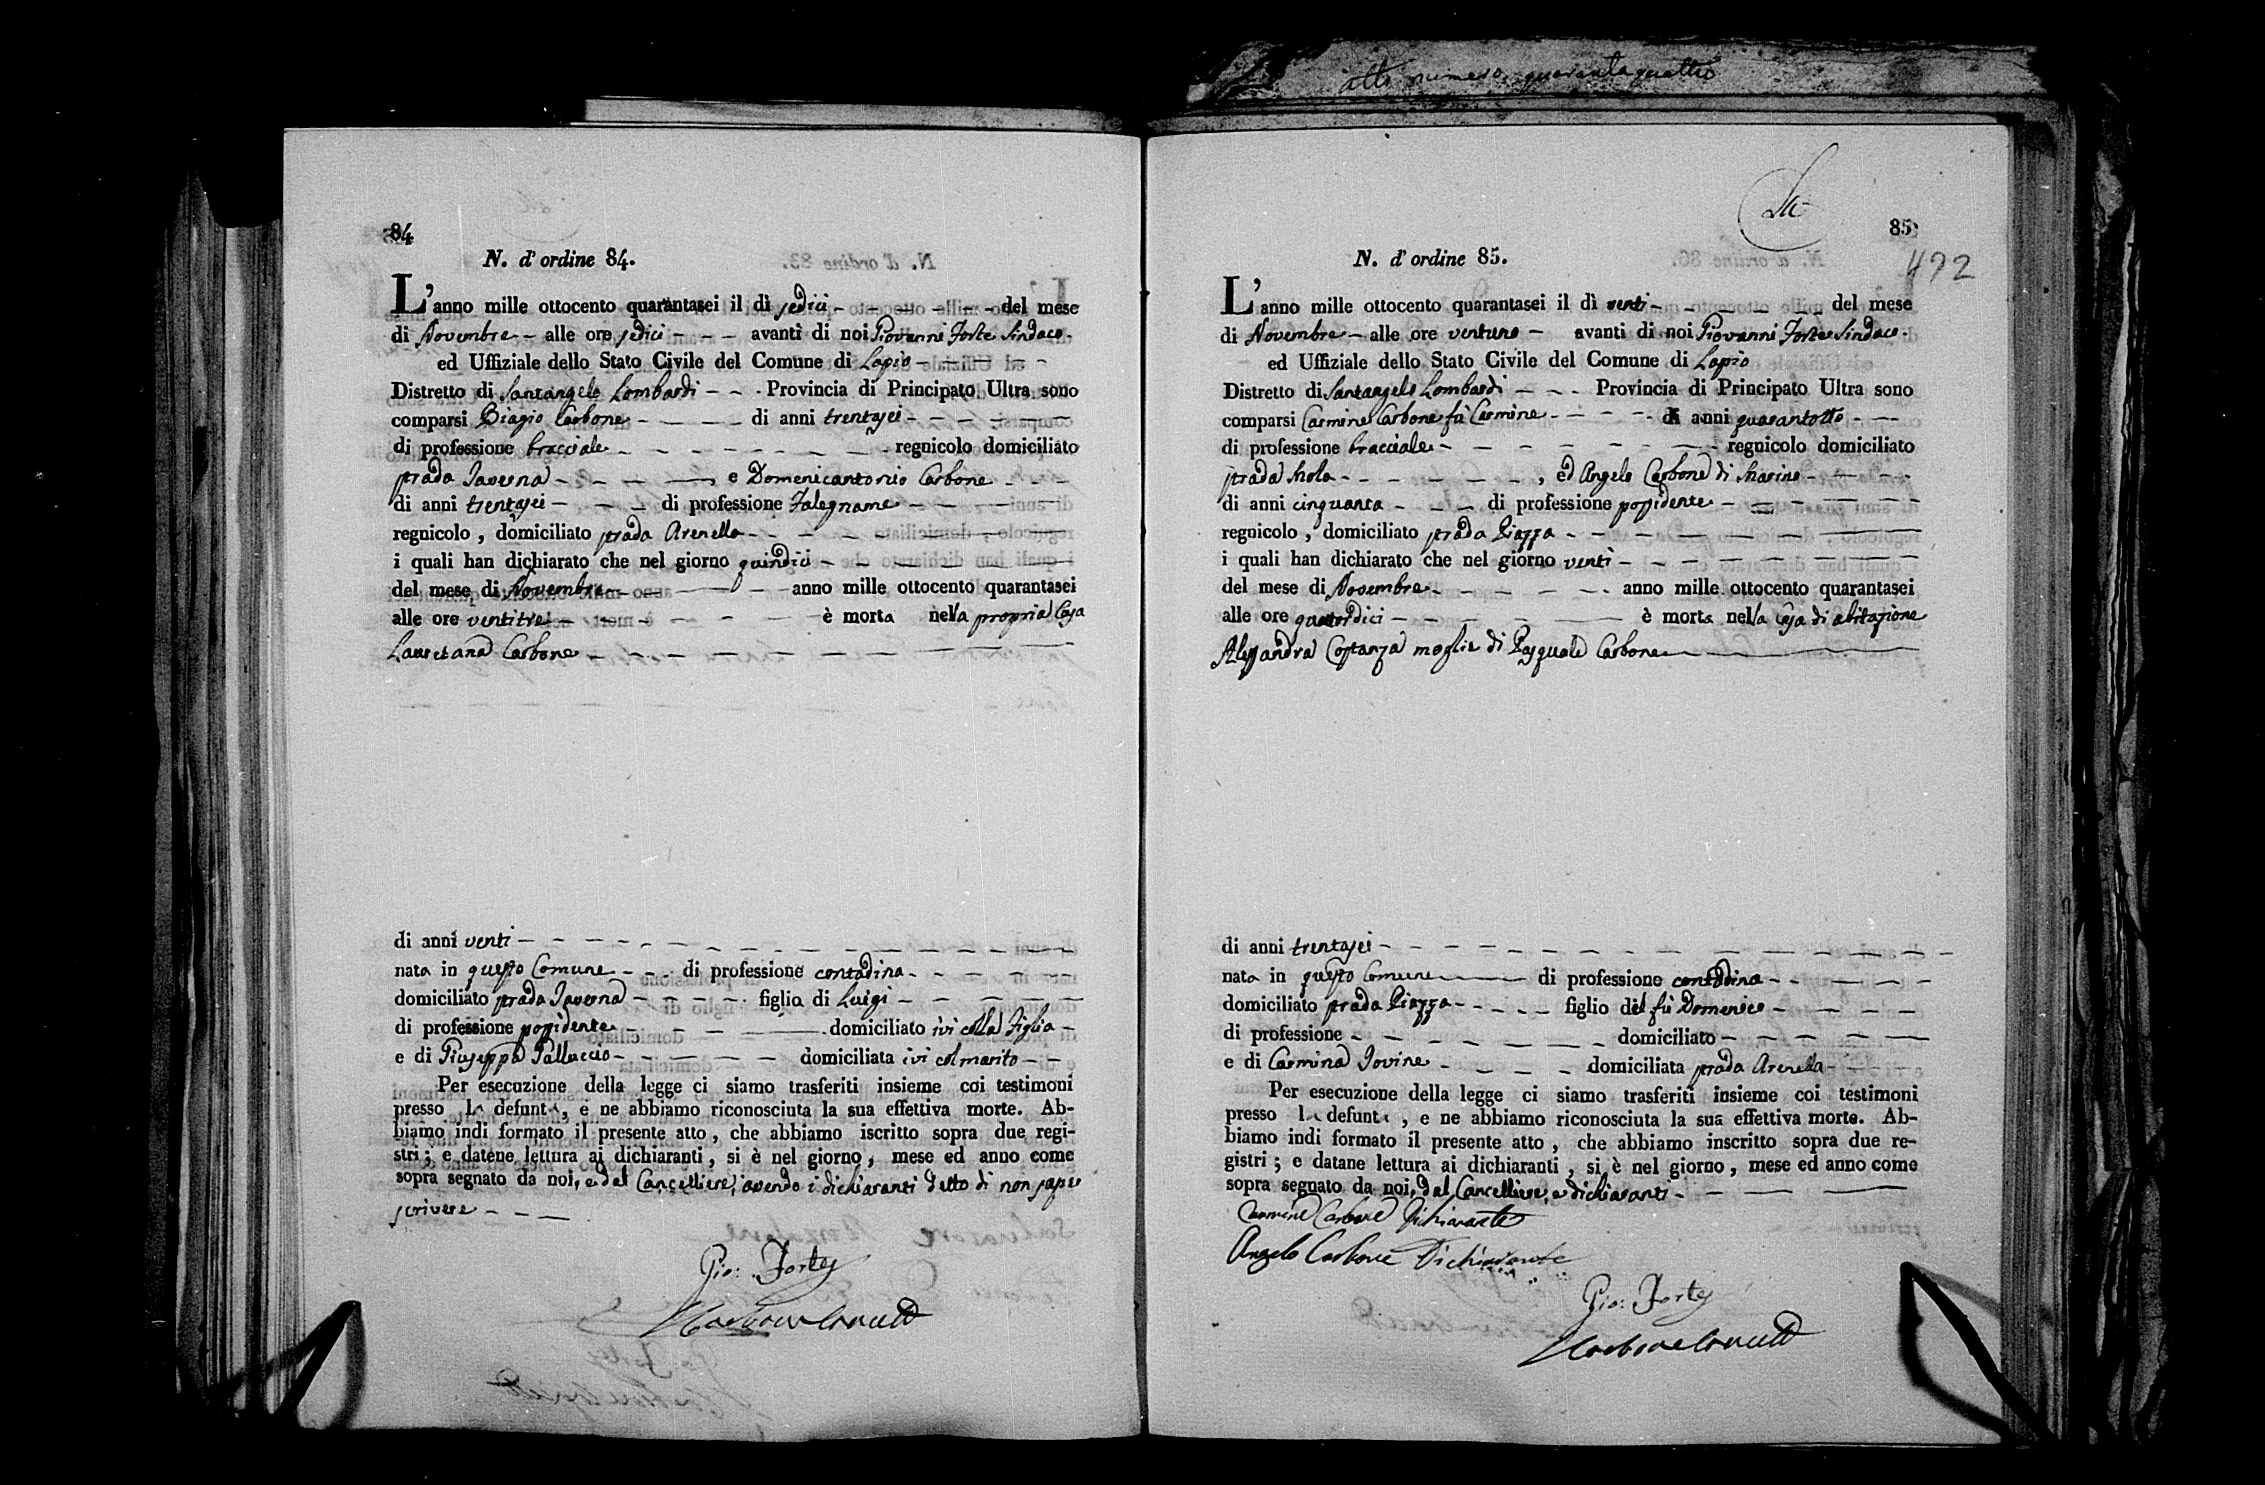 atto numero quarantaquattro
84
N. d'ordine 84.
L'anno mille ottocento quarantasei il dì sedici del mese
di Novembre alle ore sedici avanti di noi Giovanni Forte Sindaco
ed Uffiziale dello Stato Civile del Comune di Lapio
Distretto di Santangelo Lombardi Provincia di Principato Ultra sono
comparsi Biagio Carbone di anni trentasei
di professione bracciale regnicolo domiciliato
strada Taverna e Domenicantonio Carbone
di anni trentasei di professione Falegname
regnicolo, domiciliato strada Arenella
i quali han dichiarato che nel giorno quindici
del mese di Novembre anno mille ottocento quarantasei
alle ore ventitre è morta nella propria Casa
Lauretana Carbone
di anni venti
nata in questo Comune di professione contadina
domiciliato strada Taverna figlia di Luigi
di professione possidente domiciliato ivi colla Figlia
e di Giuseppa Palluccio domiciliata ivi col marito
Per esecuzione della legge ci siamo trasferiti insieme coi testimoni
presso la defunta, e ne abbiamo riconosciuta la sua effettiva morte. Ab-
biamo indi formato il presente atto, che abbiamo iscritto sopra due regi-
stri; e datene lettura ai dichiaranti, si è nel giorno, mese ed anno come
sopra segnato da noi, e dal Cancelliere, avendo i dichiaranti detto di non saper
scrivere
Gio: Forte
Carbone
85
472
N. d'ordine 85.
L'anno mille ottocento quarantasei il dì venti del mese
di Novembre alle ore ventuno avanti di noi Giovanni Forte Sindaco
ed Uffiziale dello Stato Civile del Comune di Lapio
Distretto di Santangelo Lombardi Provincia di Principato Ultra sono
comparsi Carmine Carbone fù Carmine di anni quarantotto
di professione bracciale regnicolo domiciliato
strada , ed Angelo Carbone di
di anni cinquanta di professione possidente
regnicolo, domiciliato strada Piazza
i quali han dichiarato che nel giorno venti
del mese di Novembre anno mille ottocento quarantasei
alle ore quattordici è morta nella casa di abitazione
Alessandra Costanza moglie di Pasquale Carbone
di anni trentasei
nata in questo Comune di professione contadina
domiciliato strada Piazza figlio del fù Domenico
di professione domiciliato
e di Carmina Iovine domiciliata strada Arenella
Per esecuzione della legge ci siamo trasferiti insieme coi testimoni
presso la defunta, e ne abbiamo riconosciuta la sua effettiva morte. Ab-
biamo indi formato il presente atto, che abbiamo inscritto sopra due re-
gistri; e datane lettura ai dichiaranti, si è nel giorno, mese ed anno come
sopra segnato da noi, dal Cancelliere, e dichiaranti
Carmine Carbone Dichiarante
Angelo Carbone Dichiarante
Gio: Forte
Carbone